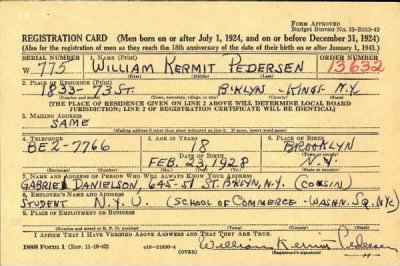 FORM APPROVED
Budget Bureau No. 33-R012-42
REGISTRATION CARD (Men born on or after July 1, 1924, and on or before December 31, 1924)
(Also for the registration of men as they reach the 18th anniversary of the date of their birth on or after January 1, 1943.)
SERIAL NUMBER 1. NAME (Print) ORDER NUMBER
W 775 WILLIAM KERMIT PEDERSEN 13632
(First) (Middle) (Last)
2. PLACE OF RESIDENCE (Print)
1833-73 ST. B'KLYN - KINGS N.Y.
(Number and street) (Town, township, village, or city) (County) (State)
[THE PLACE OF RESIDENCE GIVEN ON LINE 2 ABOVE WILL DETERMINE LOCAL BOARD
JURISDICTION; LINE 2 OF REGISTRATION CERTIFICATE WILL BE IDENTICAL]
3. MAILING ADDRESS
SAME
(Mailing address if other than place indicated on line 2. If same, insert word same)
4. TELEPHONE 5. AGE IN YEARS 6. PLACE OF BIRTH
BE2-7766 18 BROOKLYN
DATE OF BIRTH
FEB. 23, 1928 N.Y.
7. NAME AND ADDRESS OF PERSON WHO WILL ALWAYS KNOW YOUR ADDRESS
GABRIEL DANIELSON, 645-51 ST. BKLYN, N.Y. (COUSIN)
8. EMPLOYER'S NAME AND ADDRESS
STUDENT N.Y.U. (SCHOOL OF COMMERCE - WASHN. SQ. NYC)
9. PLACE OF EMPLOYMENT OR BUSINESS
I AFFIRM THAT I HAVE VERIFIED ABOVE ANSWERS AND THAT THEY ARE TRUE.
DSS Form 1 (Rev. 11-16-42) (OVER) William Kermit Pedersen
(Registrant's signature)